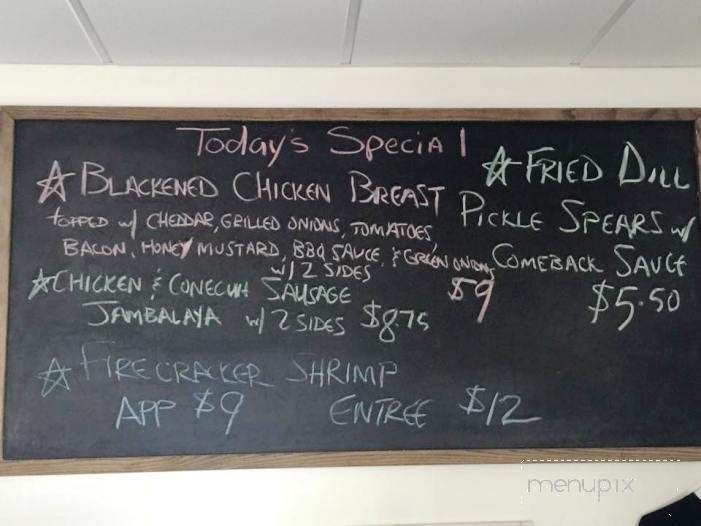 Today's Special
☆ BLACKENED CHICKEN BREAST
TOPPED w/ CHEDDAR, GRILLED ONIONS, TOMATOES
BACON, HONEY MUSTARD, BBQ SAUCE, & GREEN ONIONS
w/ 2 SIDES
$9
☆ CHICKEN & CONECUH SAUSAGE
JAMBALAYA w/ 2 SIDES $8.75
☆ FIRECRACKER SHRIMP
APP $9 ENTREE $12
☆ FRIED DILL
PICKLE SPEARS w/
COMEBACK SAUCE
$5.50
menupix